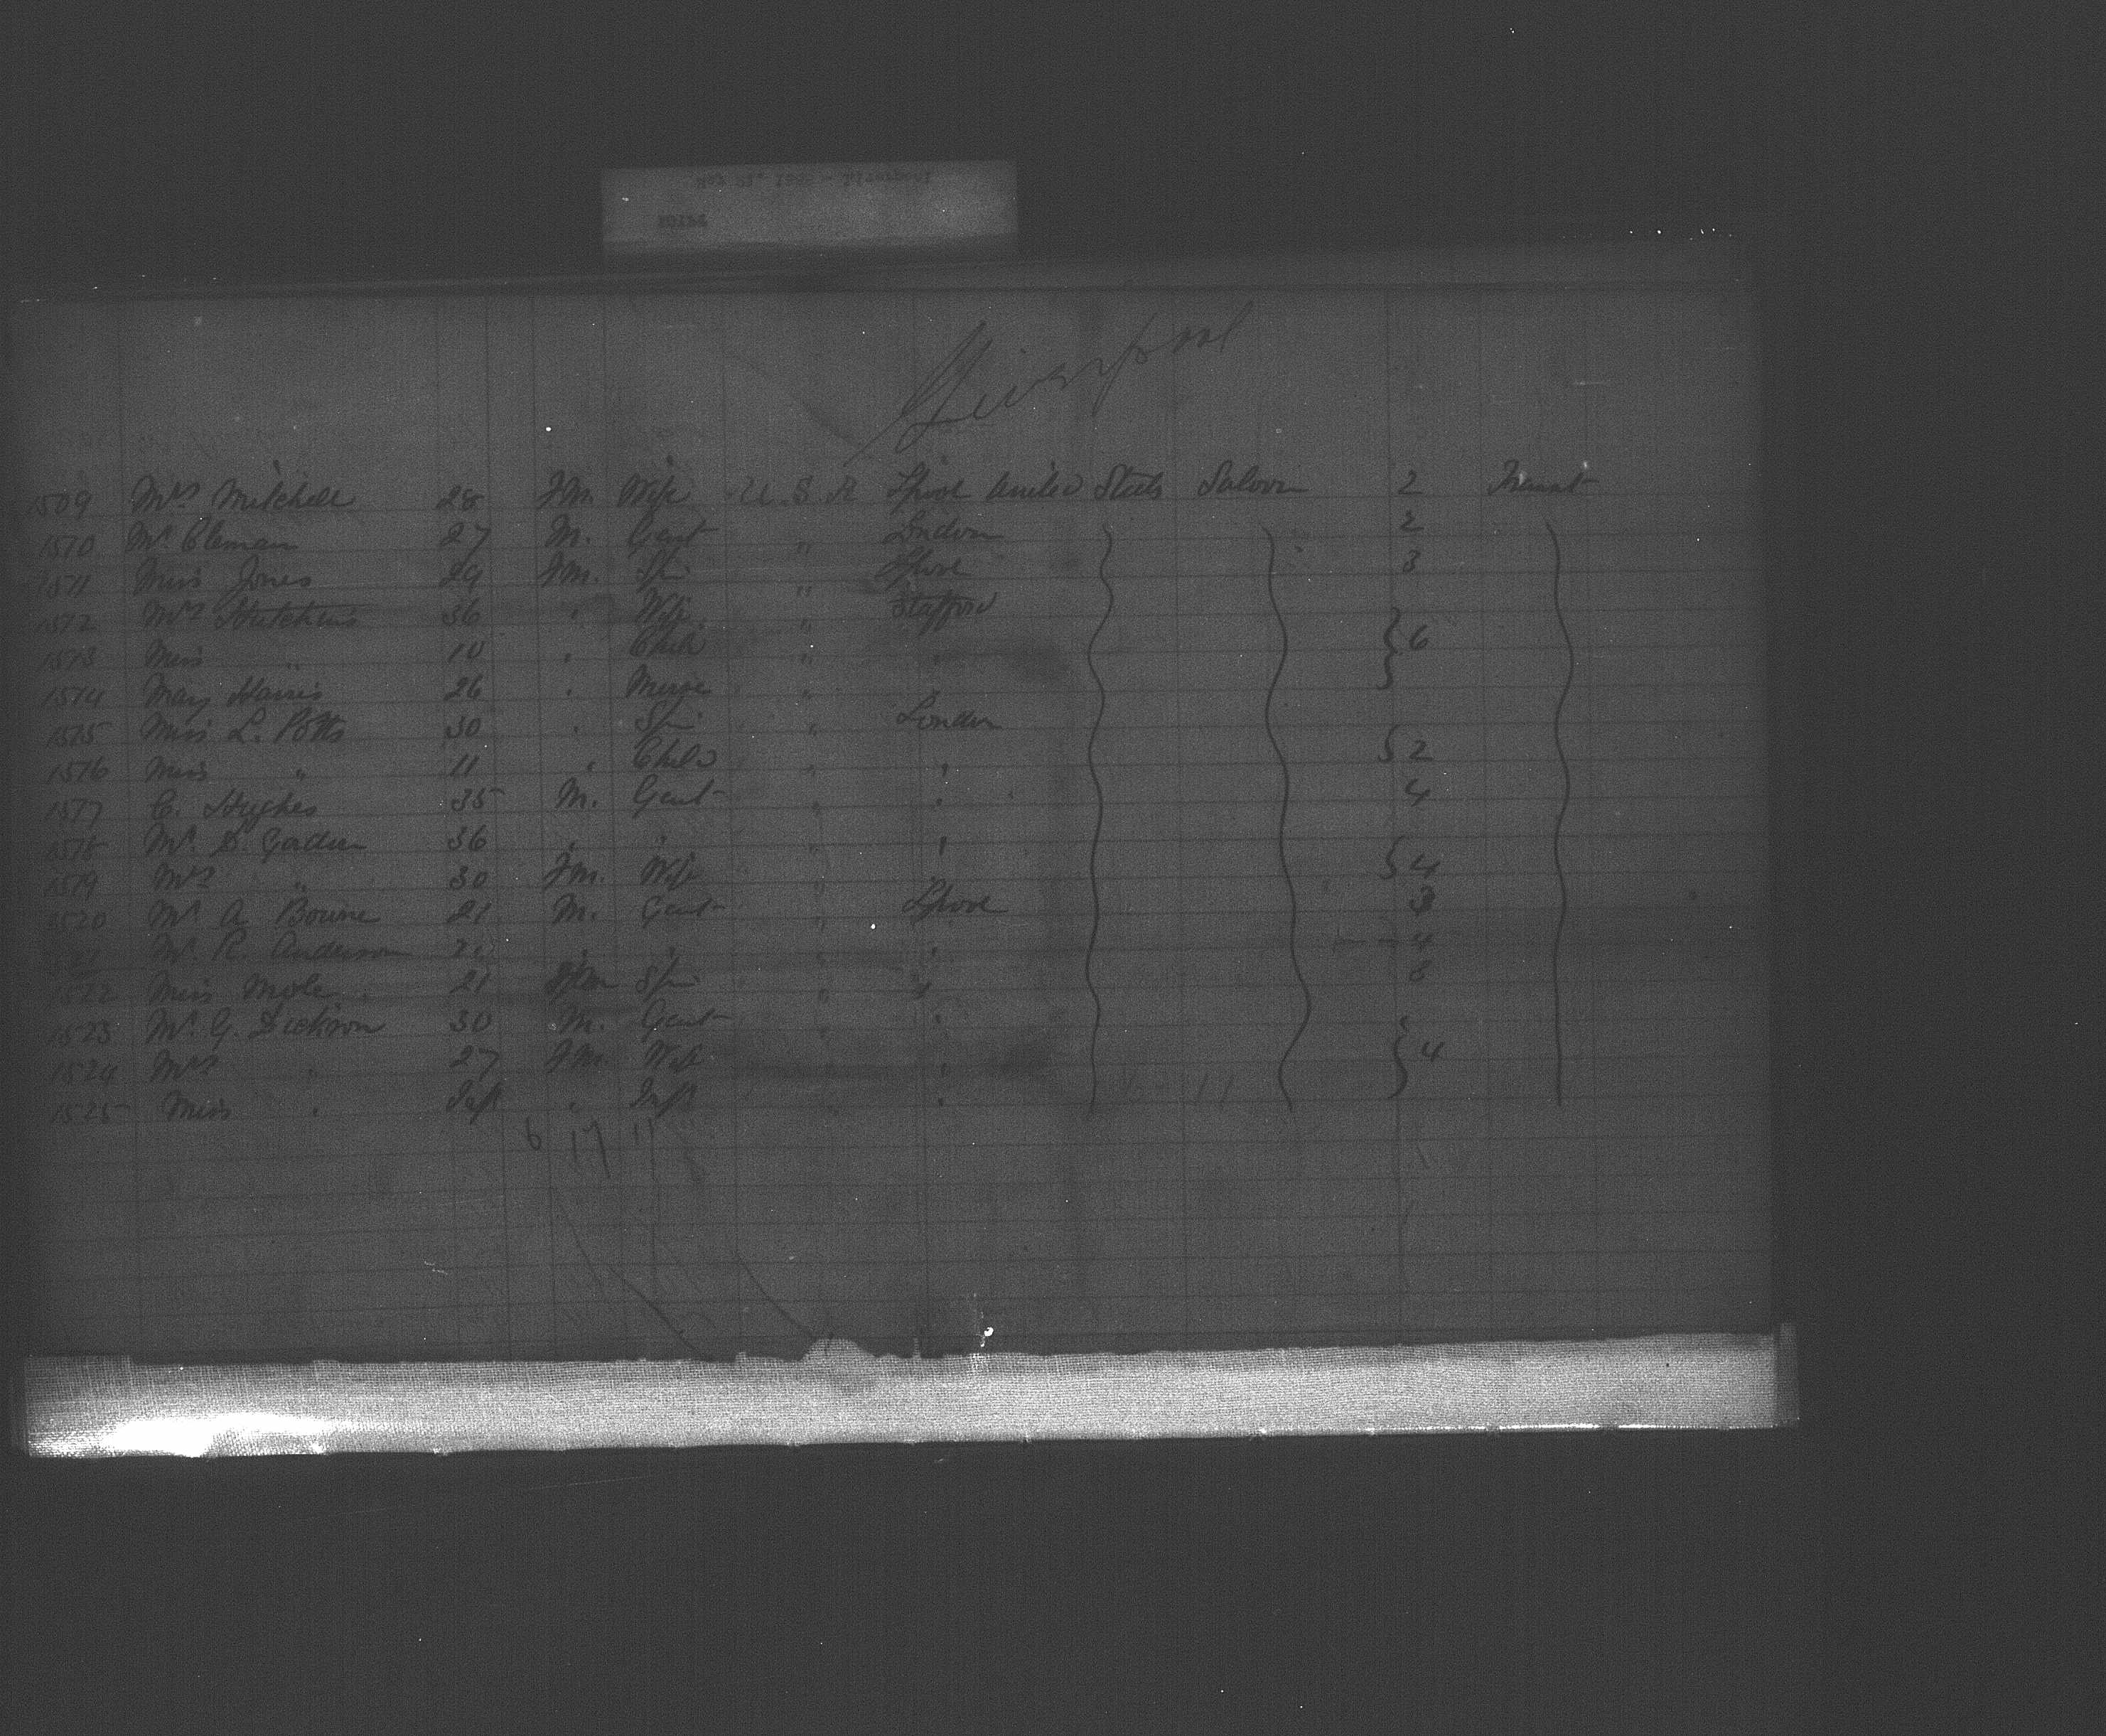 Liverpool
1509 Mrs Mitchell 28 Fm. Wife U.S.A Lpool United States Saloon 2 Transit
1510 Mr Cleman 27 M. Gent " London 2
1511 Miss Jones 29 Fm. Spr " Lpool 3
1512 Mrs Hutchins 36 " Wife " Stafford
1513 Miss " 10 " Child " " } 6
1514 Mary Harris 26 " Nurse " "
1515 Miss L. Potts 30 " Spr " London
1516 Miss " 11 " Child " " { 2
1517 C. Hughes 35 M. Gent " " 4
1518 Mr. D. 36 " " " "
1519 Mrs " 30 Fm. Wife " { 4
1520 Mr A Bourne 21 M. Gent " Lpool 3
Mr. R. Anderson " " " " 4
1522 Miss Mole 21 Fm Spr " "
1523 Mr. G. Dickson 30 M. Gent " "
1524 Mrs " 27 Fm. Wife " } 4
1525 Miss " Inft " Inft " "
6 17 11